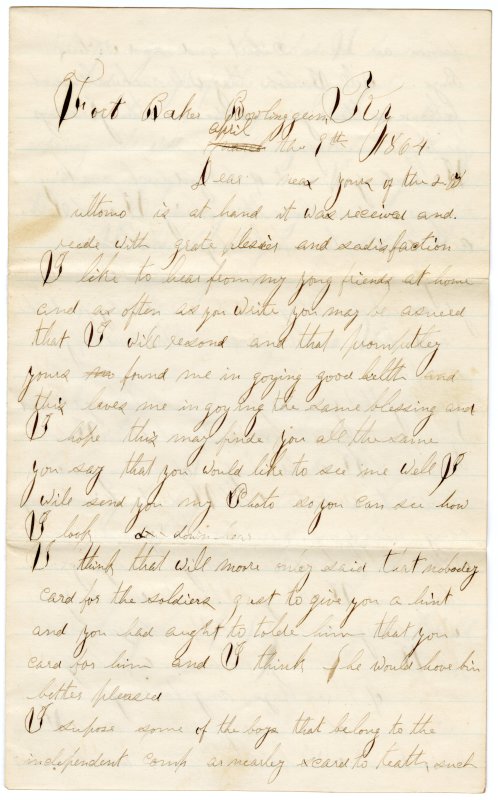 Fort Baker Bowlinggreen Ky
april
the 9th 1864
Dear near yours of the 28
ultomo is at hand it was received and
reede with grate plesier and sadisfaction
I like to hear from my yong friends at home
and as often as you write you may be asured
that I will resond and that promptley
yours found me in goying good helth and
this leves me in goying the same blessing and
I hope this may finde you all the same
you say that you would like to see me well I
will send you my Photo so you can see how
I look down here
I think that will moore only said that nobodey
card for the soldiers gust to give you a hint
and you had aught to tolde him that you
card for him and I think he would have bin
better pleased
I supose some of the boys that belong to the
independent comp as nearley scard to death such